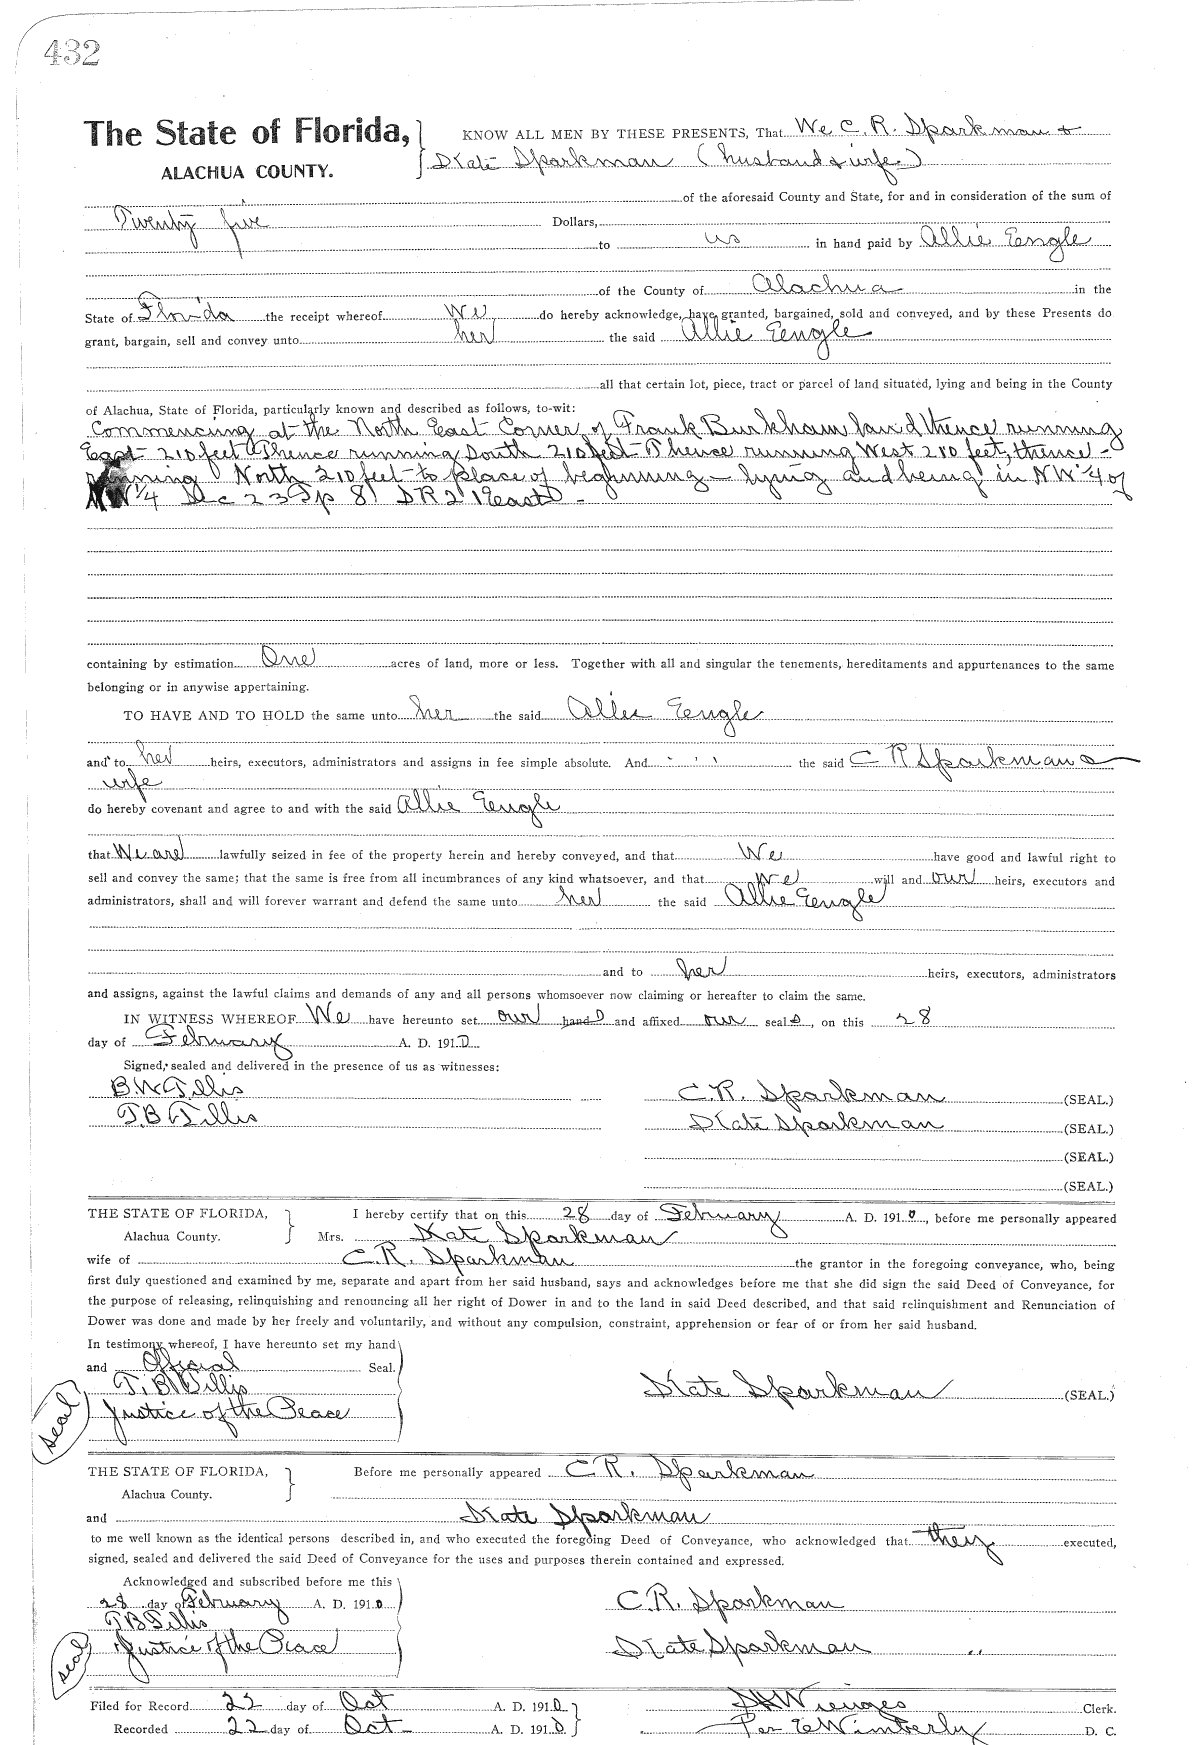 432
The State of Florida, KNOW ALL MEN BY THESE PRESENTS, That We C. R. Sparkman &
ALACHUA COUNTY. Kate Sparkman (husband & wife)
of the aforesaid County and State, for and in consideration of the sum of
Twenty five Dollars,
to us in hand paid by Allie Eengle
of the County of Alachua in the
State of Florida the receipt whereof We do hereby acknowledge, have granted, bargained, sold and conveyed, and by these Presents do
grant, bargain, sell and convey unto her the said Allie Eengle
all that certain lot, piece, tract or parcel of land situated, lying and being in the County
of Alachua, State of Florida, particularly known and described as follows, to-wit:
Commencing at the North East Corner of Frank Burkham land thence running
East 210 feet Thence running South 210 feet Thence running West 210 feet, thence -
running North 210 feet to place of beginning - lying and being in NW 1/4 of
NW 1/4 Sec 23 Tp 8 S R 21 east -
containing by estimation One acres of land, more or less. Together with all and singular the tenements, hereditaments and appurtenances to the same
belonging or in anywise appertaining.
TO HAVE AND TO HOLD the same unto her the said Allie Eengle
and to her heirs, executors, administrators and assigns in fee simple absolute. And the said C R Sparkman &
wife
do hereby covenant and agree to and with the said Allie Eengle
that We are lawfully seized in fee of the property herein and hereby conveyed, and that We have good and lawful right to
sell and convey the same; that the same is free from all incumbrances of any kind whatsoever, and that we will and our heirs, executors and
administrators, shall and will forever warrant and defend the same unto her the said Allie Eengle
and to her heirs, executors, administrators
and assigns, against the lawful claims and demands of any and all persons whomsoever now claiming or hereafter to claim the same.
IN WITNESS WHEREOF We have hereunto set our hands and affixed our seals, on this 28
day of February A. D. 1910.
Signed, sealed and delivered in the presence of us as witnesses:
B. W. Tillis C. R. Sparkman (SEAL.)
T. B. Tillis Kate Sparkman (SEAL.)
(SEAL.)
(SEAL.)
THE STATE OF FLORIDA, I hereby certify that on this 28 day of February A. D. 1910, before me personally appeared
Alachua County. Mrs. Kate Sparkman
wife of C. R. Sparkman the grantor in the foregoing conveyance, who, being
first duly questioned and examined by me, separate and apart from her said husband, says and acknowledges before me that she did sign the said Deed of Conveyance, for
the purpose of releasing, relinquishing and renouncing all her right of Dower in and to the land in said Deed described, and that said relinquishment and Renunciation of
Dower was done and made by her freely and voluntarily, and without any compulsion, constraint, apprehension or fear of or from her said husband.
In testimony whereof, I have hereunto set my hand
and Official Seal.
T. B. Tillis Kate Sparkman (SEAL.)
seal Justice of the Peace
THE STATE OF FLORIDA, Before me personally appeared C. R. Sparkman
Alachua County.
and Kate Sparkman
to me well known as the identical persons described in, and who executed the foregoing Deed of Conveyance, who acknowledged that they executed,
signed, sealed and delivered the said Deed of Conveyance for the uses and purposes therein contained and expressed.
Acknowledged and subscribed before me this
28 day of February A. D. 1910 C. R. Sparkman
T B Tillis
seal Justice of the Peace Kate Sparkman
Filed for Record 22 day of Oct A. D. 1910 S H Wienges Clerk.
Recorded 22 day of Oct A. D. 1910 Per E Wimberly D. C.